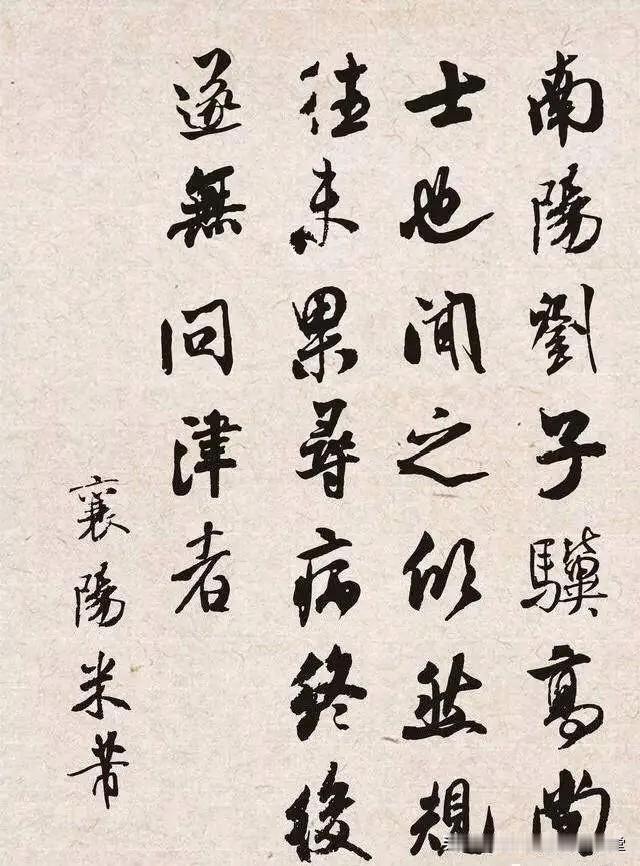 南陽劉子驥高尚
士也聞之欣然規
往未果尋病終後
遂無問津者
襄陽米芾